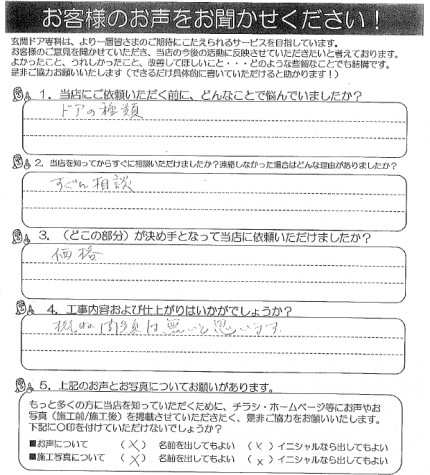 お客様のお声をお聞かせください！
玄関ドア専科は、より一層皆さまのご期待にこたえられるサービスを目指しています。
お客様のご意見を聞かせていただき、当店の今後の活動に反映させていただきたいと考えております。
よかったこと、うれしかったこと、改善してほしいこと・・・どのような些細なことでも結構です。
是非ご協力お願いいたします（できるだけ具体的に書いていただけると助かります！）
1．当店にご依頼いただく前に、どんなことで悩んでいましたか？
ドアの種類
2．当店を知ってからすぐに相談いただけましたか？連絡しなかった場合はどんな理由がありましたか？
すぐに相談
3．（どこの部分）が決め手となって当店に依頼いただけましたか？
価格
4．工事内容および仕上がりはいかがでしょうか？
概ね問題は無いと思います。
5．上記のお声とお写真についてお願いがあります。
もっと多くの方に当店を知っていただくために、チラシ・ホームページ等にお声やお
写真（施工前/施工後）を掲載させていただきたく、是非ご協力をお願いいたします。
下記に〇印を付けていただけないでしょうか？
■お声について （×） 名前を出してもよい （×）イニシャルなら出してもよい
■施工写真について （×） 名前を出してもよい （×）イニシャルなら出してもよい